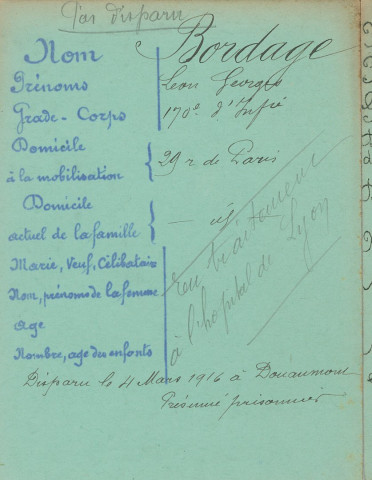 Pas disparu
Nom Bordage
Prénoms Léon Georges
Grade-Corps 170e d'Infie
Domicile
à la mobilisation 29 r de Paris
Domicile
actuel de la famille — id —
Marié, Veuf, Célibataire
Nom, prénoms de la femme
age
Nombre, age des enfants
en traitement
à l'hopital de Lyon
Disparu le 4 Mars 1916 à Douaumont
Présumé prisonnier